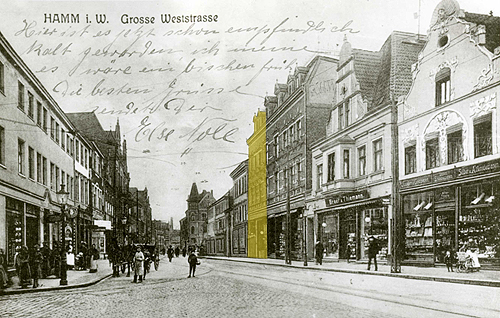 HAMM i. W. Grosse Weststrasse
Hier ist es jetzt schon empfindlich
kalt geworden ich meine
es wäre ein bischen früh
die besten Grüsse
sendet Dir
Else Nolle